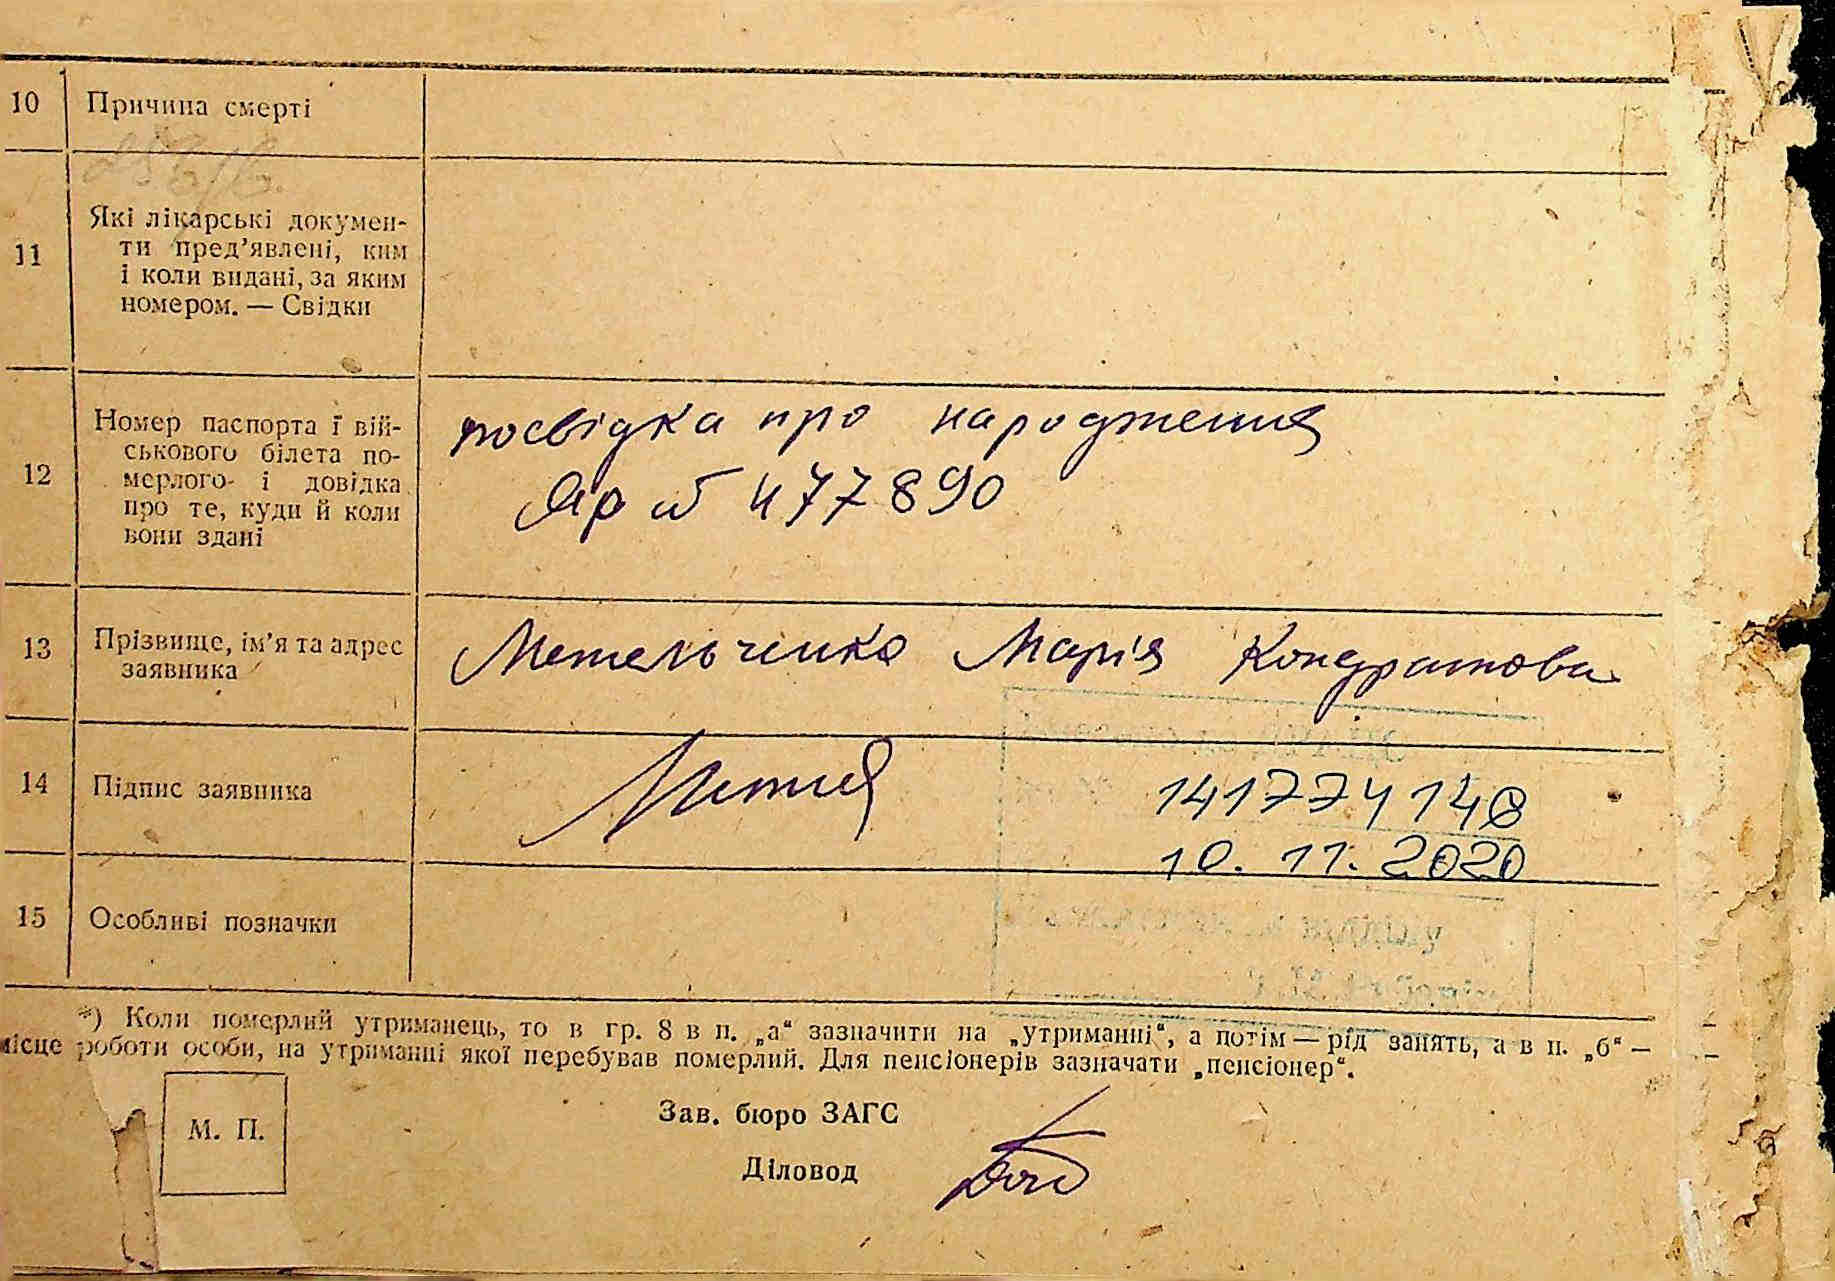 10 Причина смерті
11 Які лікарські докумен-
ти пред'явлені, ким
і коли видані, за яким
номером. — Свідки
12 Номер паспорта ї вій-
ськового білета по-
мерлого і довідка
про те, куди й коли
вони здані
посвідка про народження
477890
13 Прізвище, ім'я та адрес
заявника
Метельченко Марія Кондратова
14 Підпис заявника
141774148
10.11.2020
15 Особливі позначки
*) Коли померлий утриманець, то в гр. 8 в п. „а“ зазначити на „утриманні“, а потім — рід занять, а в п. „б“ —
місце роботи особи, на утриманні якої перебував померлий. Для пенсіонерів зазначати „пенсіонер“.
М. П.
Зав. бюро ЗАГС
Діловод